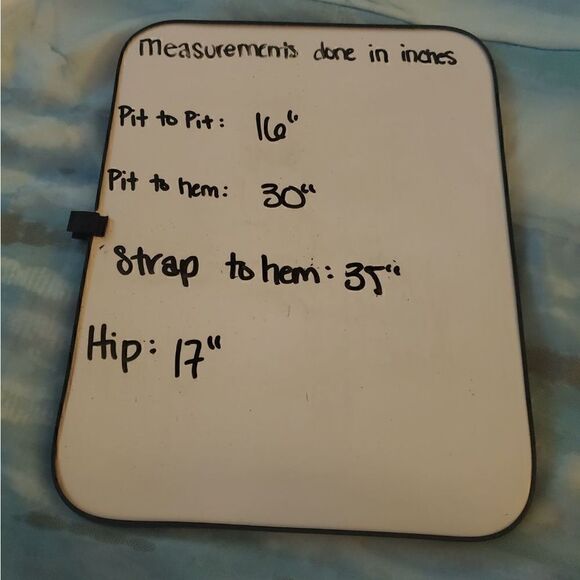 measurements done in inches
Pit to Pit: 16"
Pit to hem: 30"
Strap to hem: 35"
Hip: 17"